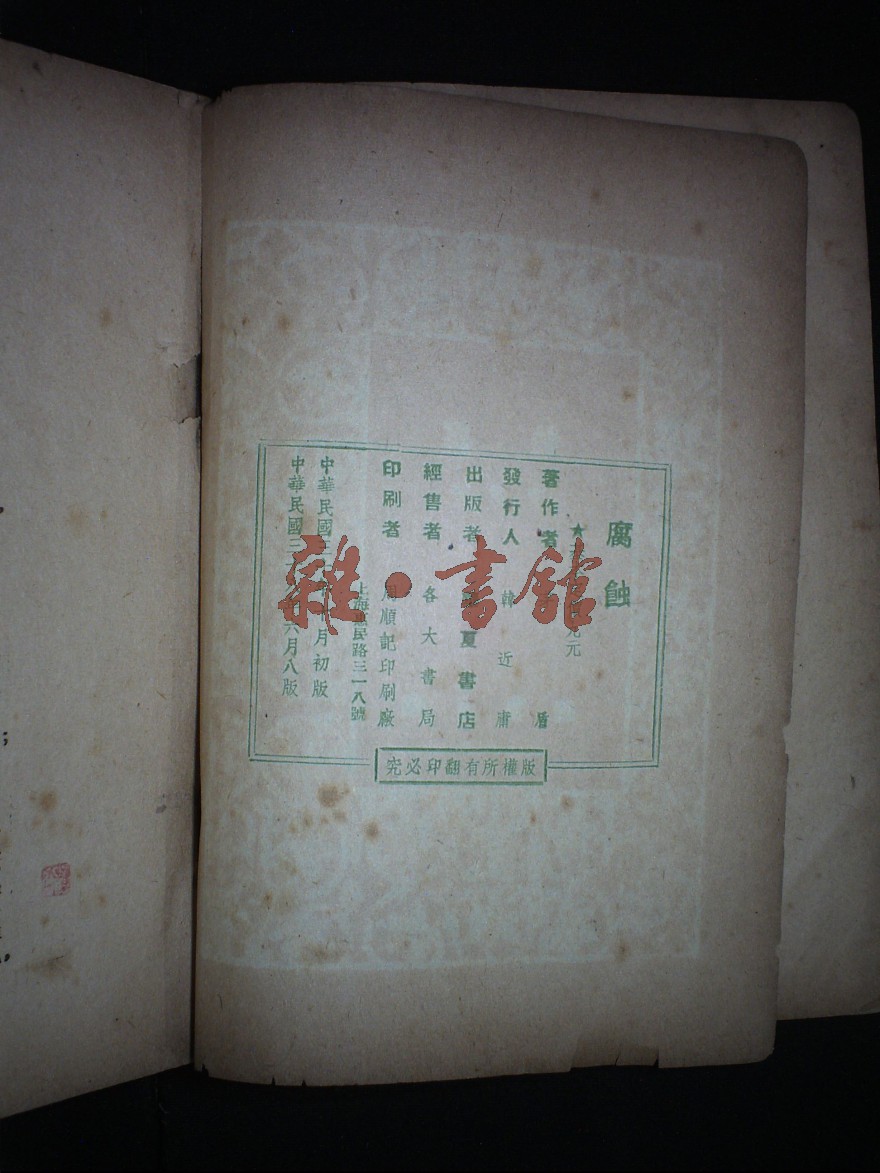 腐蝕
★ 元
著作者 盾
發行人 韓近庸
出版者 夏書店
經售者 各大書局
印刷者 周順記印刷廠
上海惠民路三一八號
中華民國三 月初版
中華民國三 六月八版
版權所有翻印必究
雜·書館